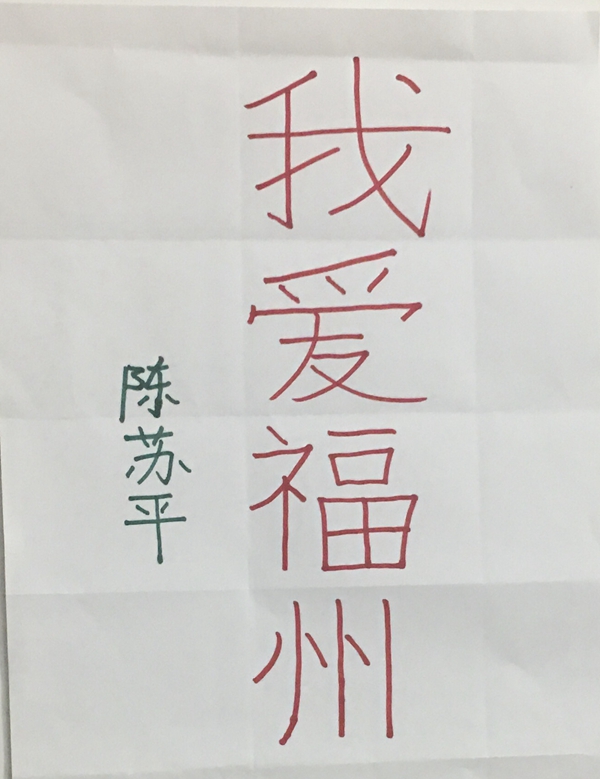 我爱福州
陈苏平